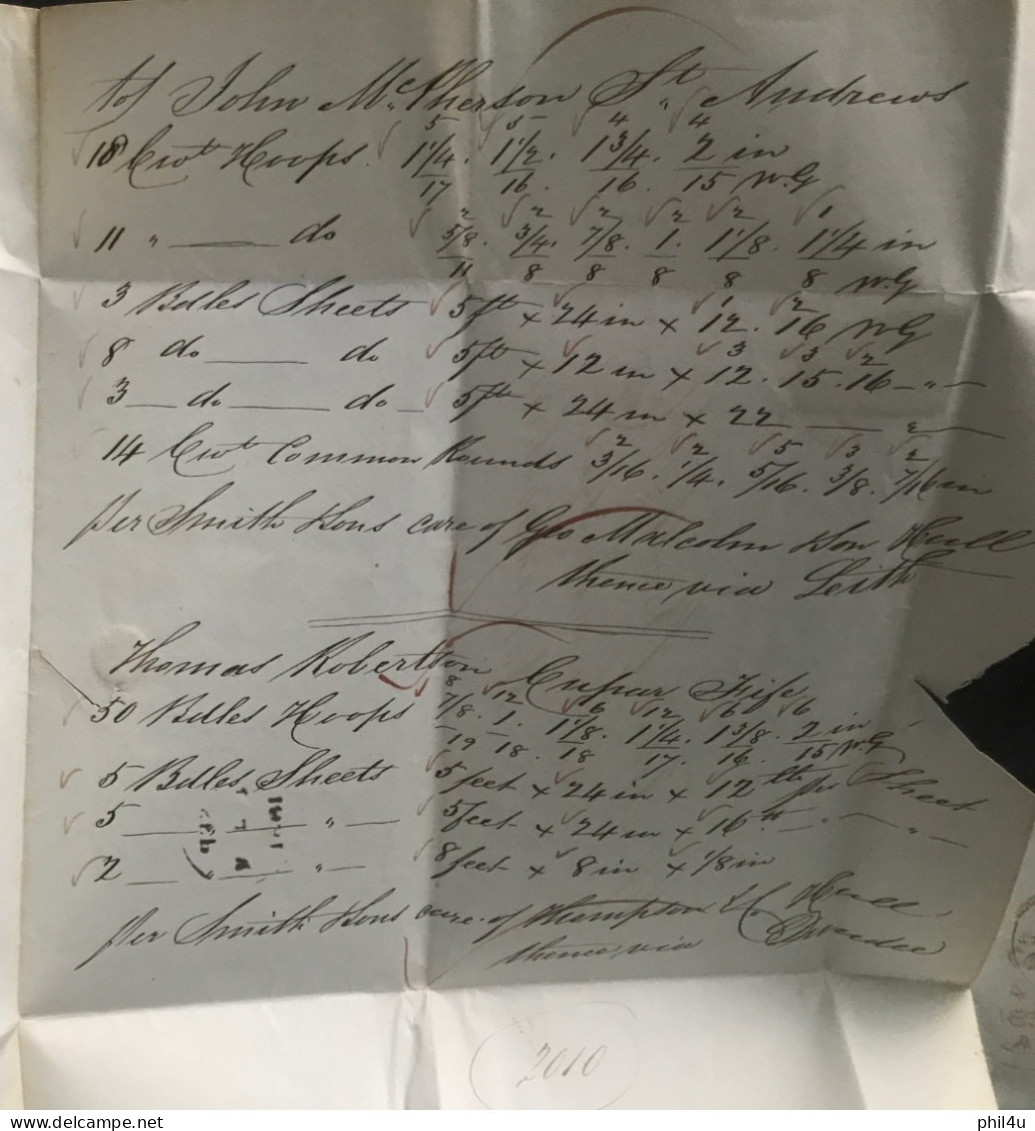 to/ John McPherson St Andrews
5 5 4 4
18 Cwt Hoops. 1 1/4. 1 1/2. 1 3/4. 2 in
17 16. 16. 15 W.G
2 2 2 2 2 1
11 " —— do 5/8. 3/4. 7/8. 1. 1 1/8. 1 1/4 in
11 8 8 8 8 8 W.G
1 2
3 Bdles Sheets 5 ft × 24 in × 12. 16 WG
3 3 2
8 do —— do 5 ft × 12 in × 12. 15. 16 — " —
3 — do —— do — 5 ft × 24 in × 22 —— " ——
2 2 5 3 2
14 Cwt Common Rounds 3/16. 1/4. 5/16. 3/8. 7/16 in
per Smith & Sons care of Geo Malcolm & Son Hull
thence via Leith
Thomas Robertson Cupar Fife
8 12 6 12 6 6
50 Bdles Hoops 7/8. 1. 1 1/8. 1 1/4. 1 3/8. 2 in
19 18. 18 17. 16. 15 WG
5 Bdles Sheets 5 feet × 24 in × 12 lb pr Sheet
5 —— " — 5 feet × 24 in × 16 lb — " — " —
2 — " — 8 feet × 8 in × 1/8 in
per Smith & Sons care of Thompson & Co Hull
thence via Dundee
2010
phil4u